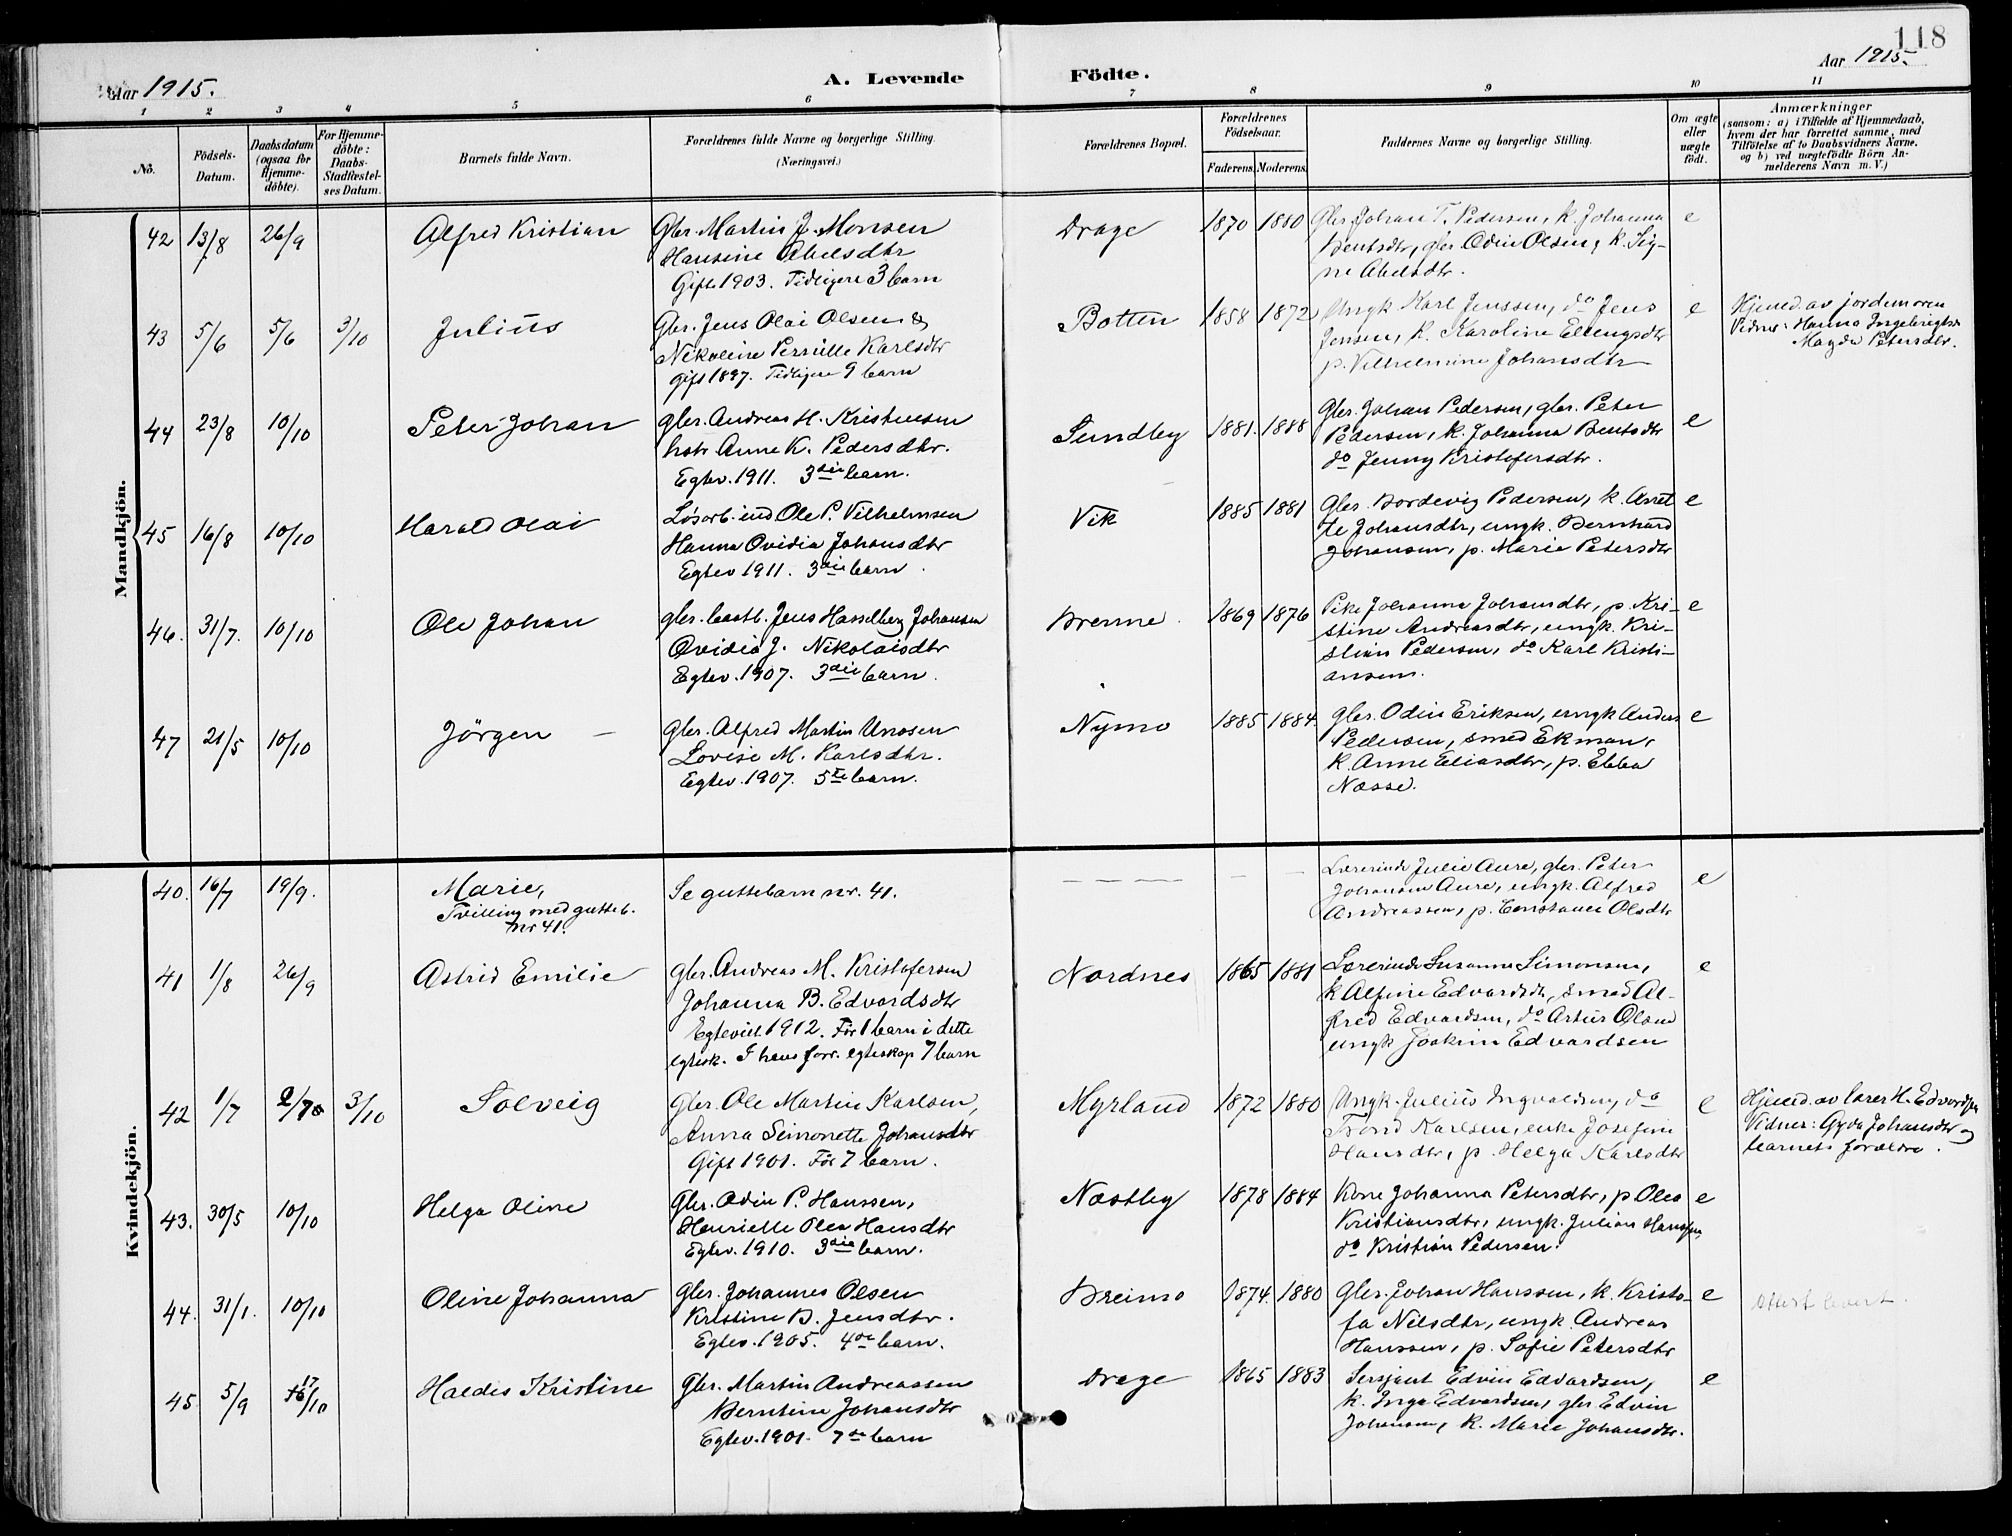 118
Aar 1915.
A. Levende
Födte.
Aar 1915.
1 2 3 4 5 6 7 8 9 10 11
No.
Födsels-
Datum.
Daabsdatum
(ogsaa for
Hjemme-
döbte).
For Hjemme-
döbte:
Daabs-
Stadfæstel-
ses Datum.
Barnets fulde Navn.
Forældrenes fulde Navne og borgerlige Stilling.
(Næringsvei.)
Forældrenes Bopæl.
Forældrenes
Födselsaar.
Faderens. Moderens.
Faddernes Navne og borgerlige Stilling.
Om ægte
eller
uægte
födt.
Anmærkninger
(saasom: a) i Tilfælde af Hjemmedaab,
hvem der har forrettet samme, med
Tilföielse af to Daabsvidners Navne.
og b) ved uægtefödte Börn An-
melderens Navn m. V.)
Mandkjön.
42 13/8 26/9 Alfred Kristian
Gbr. Martin J. Monsen
Hansine Abelsdtr
Gift 1903. Tidligere 3 barn
Drage 1870 1880
Gbr. Johan T. Pedersen, k. Johanna
Bentsdtr, gbr. Odin Olsen, k. Sig-
ne Abelsdtr.
e
43 5/6 5/6 3/10 Julius
Gbr. Jens Olai Olsen &
Nikoline Pernille Karlsdtr
gift 1897. Tidligere 9 barn
Botten 1858 1872
Ungk Karl Jenssen, do Jens
Jensen, k. Karoline Ellingsdtr
p. Vilhelmine Johansdtr
e
Hjemd. av jordemoren
Vidner: Hanna Ingebrigtsd.
Magda Petersdtr.
44 23/8 10/10 Peter Johan
gbr. Andreas H. Kristensen
hstr Anne K. Pedersdtr.
Egtev. 1911. 3die barn.
Sundby 1881. 1888
Gbr. Johan Pedersen, gbr. Peter
Pedersen, k. Johanna Bentsdtr
do Jenny Kristofersdtr.
e
45 16/8 10/10 Harald Olai
Løsarb. ind Ole P. Vilhelmsen
Hanna Ovidia Johansdtr
Egtev 1911. 3die barn.
Vik 1885 1881
Gbr. Hordevig Pedersen, k. Anet
te Johansdtr, ungk. Bernhard
Johansen, p. Marie Petersdtr
e
46. 31/7. 10/10 Ole Johan
gbr. baatb. Jens Hasselberg Johansen
Ovidia J. Nikolaisdtr
Egtev. 1907. 3die barn.
Brenne. 1869 1876
Pike Johanna Johansdtr, p. Kri-
stine Andreasdtr, ungk. Kri-
stian Pedersen, do Karl Kristi-
ansen.
e
47 21/5 10/10 Jörgen —
Gbr. Alfred Martin Unosen
Lovise M. Karlsdtr.
Egtev. 1907. 5te barn.
Nymo 1885 1884.
Gbr. Odin Eriksen, ungk Anders
Pedersen, smed Ekman,
k. Anne Eliasdtr, p. Ebba
Næsse.
e
Kvindekjön.
40. 16/7 19/9. Marie,
Tvilling med gutteb.
nr 41.
Se guttebarn nr. 41.
— — — — — —
Lærerinde Julie Aure, gbr. Peter
Johansen Aure, ungk. Alfred
Andreassen, p. Constance Olsdtr
e
41 1/8 26/9 Astrid Emilie
gbr. Andreas M. Kristofersen
Johanna B. Edvardsdtr
Egteviet 1912. Før 1 barn i dette
egtesk. I hans forr. egteskap 7 barn
Nordnes 1865 1881
Lærerinde Susanna Simonsen,
k Alfine Edvardsdtr, smed Al-
fred Edvardsen, do Artur Olsen
ungk Joakim Edvardsen
e
42 1/7 2/7 3/10 Solveig
Gbr. Ole Martin Karlsen,
Anna Simonette Johansdtr
Gift 1901. Før 7 barn.
Myrland 1872 1880
Ungk. Julius Ingvaldsen, do
Trond Karlsen, enke Josefine
Hansdtr, p. Helga Karlsdtr
e
Hjemd. av lærer H. Edvardsen
Vidner: Gyda Johansdtr og
barnets forældre.
43. 30/5 10/10 Helga Oline
Gbr. Odin P. Hanssen,
Henriette Olea Hansdtr
Egtev. 1910. 3die barn.
Næstby 1878 1884
Kone Johanna Petersdtr, p Olea
Kristiansdtr, ungk. Julian Hanssen,
do Kristian Pedersen.
e
44. 31/1. 10/10 Oline Johanna
Gbr. Johannes Olsen
Kristine B. Jensdtr.
Egtev. 1905. 4de barn.
Breimo 1874. 1880
Gbr. Johan Hanssen, k. Kristo-
fa Nilsdtr, ungk. Andreas
Hanssen, p. Sofie Petersdtr
e
45 5/9 17/10 Haldis Kristine
Gbr. Martin Andreassen
Berntine Johansdtr
Egtev. 1901. 7de barn
Drage 1865 1883
Sersjant Edvin Edvardsen,
k. Inga Edvardsen, gbr Edvin
Johansen, k. Marie Johansdtr.
e